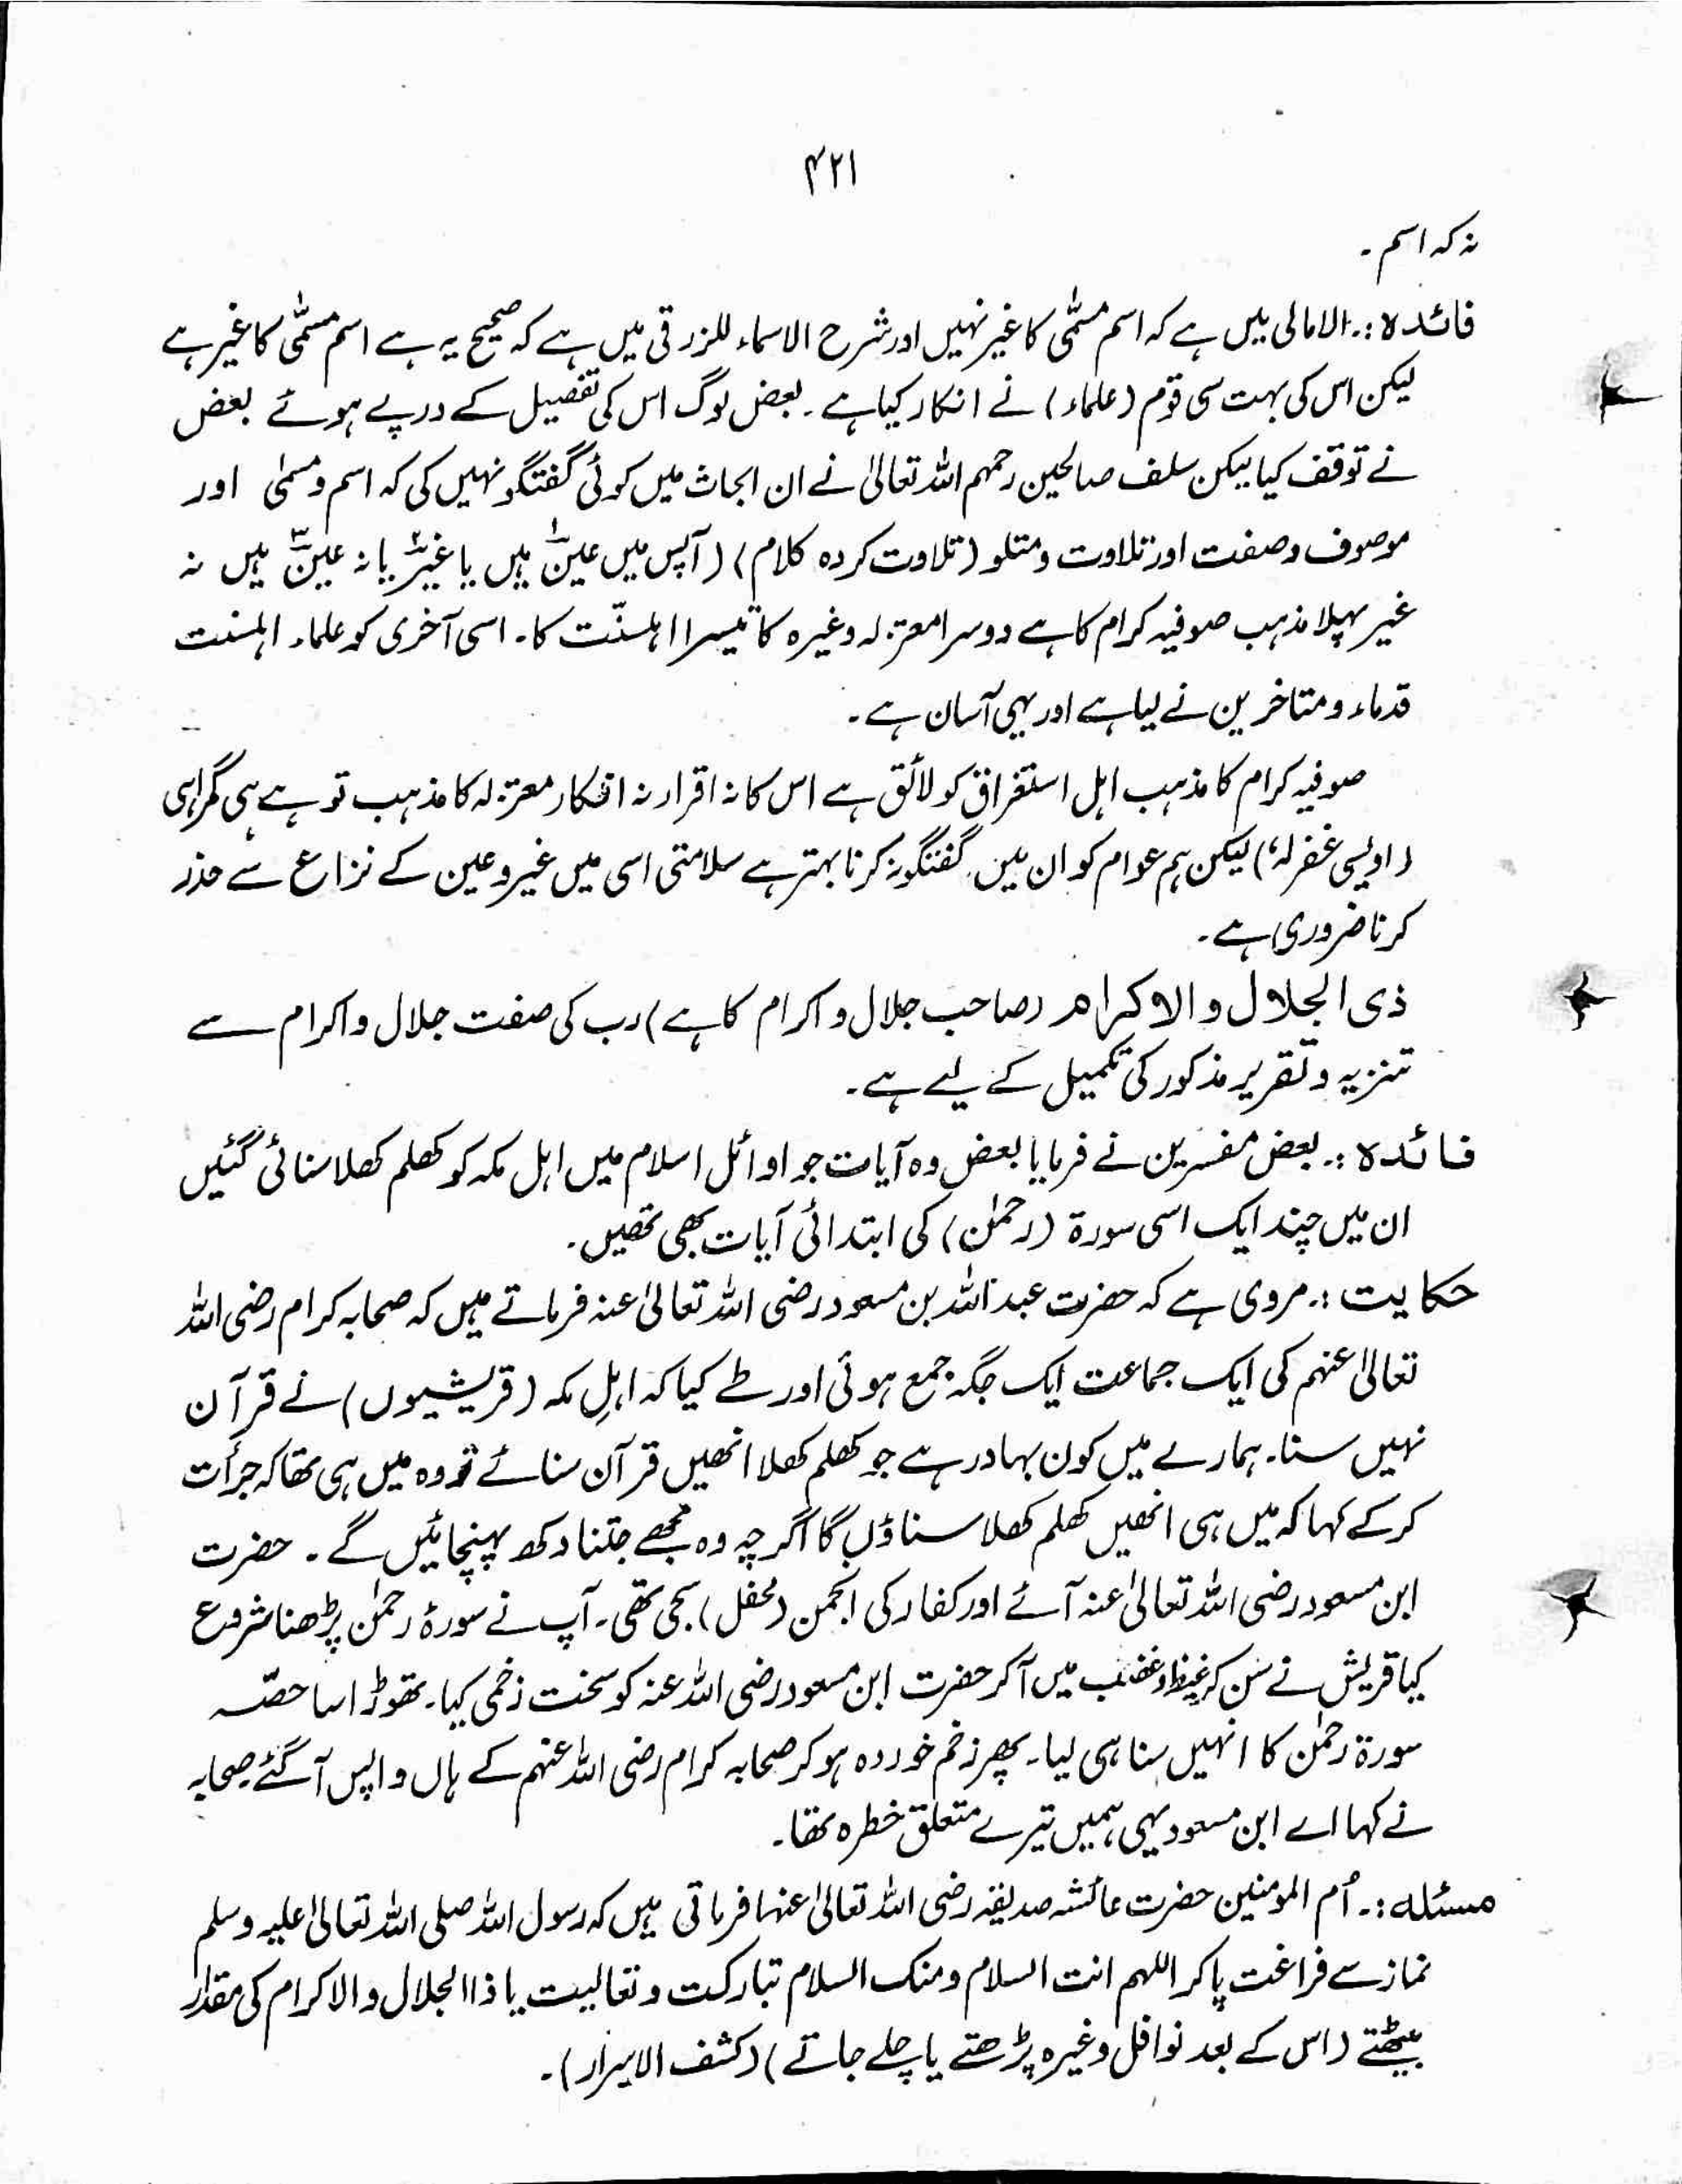 ۴۲۱
نہ کہ اسم ۔
فائدہ :۔ الامالی میں ہے کہ اسم مسمّٰی کا غیر نہیں اور شرح الاسماء للزرقی میں ہے کہ صحیح یہ ہے اسم مسمّٰی کا غیر ہے
لیکن اس کی بہت سی قوم (علماء) نے انکار کیا ہے ۔ بعض لوگ اس کی تفصیل کے درپے ہوئے بعض
نے توقف کیا لیکن سلف صالحین رحمہم اللہ تعالیٰ نے ان ابحاث میں کوئی گفتگو نہیں کی کہ اسم و مسمٰی اور
موصوف و صفت اور تلاوت و متلو (تلاوت کردہ کلام) (آپس میں عین۱ ہیں یا غیر۲ یا نہ عین۳ ہیں نہ
غیر پہلا مذہب صوفیہ کرام کا ہے دوسرا معتزلہ وغیرہ کا تیسرا اہلسنّت کا۔ اسی آخری کو علماء اہلسنت
قدماء و متاخرین نے لیا ہے اور یہی آسان ہے ۔
صوفیہ کرام کا مذہب اہل استغراق کو لائق ہے اس کا نہ اقرار نہ انکار معتزلہ کا مذہب تو ہے ہی گمراہی
(اویسی غفرلہٗ) لیکن ہم عوام کو ان میں گفتگو نہ کرنا بہتر ہے سلامتی اسی میں غیر و عین کے نزاع سے حذر
کرنا ضروری ہے ۔
ذی الجلال والاکرام (صاحب جلال و اکرام کا ہے) رب کی صفت جلال و اکرام سے
تنزیہ و تقریر مذکور کی تکمیل کے لیے ہے ۔
فائدہ :۔ بعض مفسرین نے فرمایا بعض وہ آیات جو اوائل اسلام میں اہل مکہ کو کھلم کھلا سنائی گئیں
ان میں چند ایک اسی سورۃ (رحمٰن) کی ابتدائی آیات بھی تھیں ۔
حکایت :۔ مروی ہے کہ حضرت عبد اللہ بن مسعود رضی اللہ تعالیٰ عنہ فرماتے ہیں کہ صحابہ کرام رضی اللہ
تعالیٰ عنہم کی ایک جماعت ایک جگہ جمع ہوئی اور طے کیا کہ اہلِ مکہ (قریشیوں) نے قرآن
نہیں سنا۔ ہمارے میں کون بہادر ہے جو کھلم کھلا انھیں قرآن سنائے تو وہ میں ہی تھا کہ جرأت
کرکے کہا کہ میں ہی انھیں کھلم کھلا سناؤں گا اگرچہ وہ مجھے جتنا دکھ پہنچائیں گے ۔ حضرت
ابن مسعود رضی اللہ تعالیٰ عنہ آئے اور کفار کی انجمن (محفل) سجی تھی ۔ آپ نے سورۂ رحمٰن پڑھنا شروع
کیا قریش نے سُن کر غیظ و غضب میں آکر حضرت ابن مسعود رضی اللہ عنہ کو سخت زخمی کیا۔ تھوڑا سا حصّہ
سورۃ رحمٰن کا انہیں سنا ہی لیا ۔ پھر زخم خوردہ ہو کر صحابہ کرام رضی اللہ عنہم کے ہاں واپس آگئے صحابہ
نے کہا اے ابن مسعود یہی ہمیں تیرے متعلق خطرہ تھا ۔
مسئلہ :۔ اُم المومنین حضرت عائشہ صدیقہ رضی اللہ تعالیٰ عنہا فرماتی ہیں کہ رسول اللہ صلی اللہ تعالیٰ علیہ وسلم
نماز سے فراغت پا کر اللہم انت السلام ومنک السلام تبارکت وتعالیت یا ذاالجلال والاکرام کی مقدار
بیٹھتے (اس کے بعد نوافل وغیرہ پڑھتے یا چلے جاتے) (کشف الاسرار) ۔